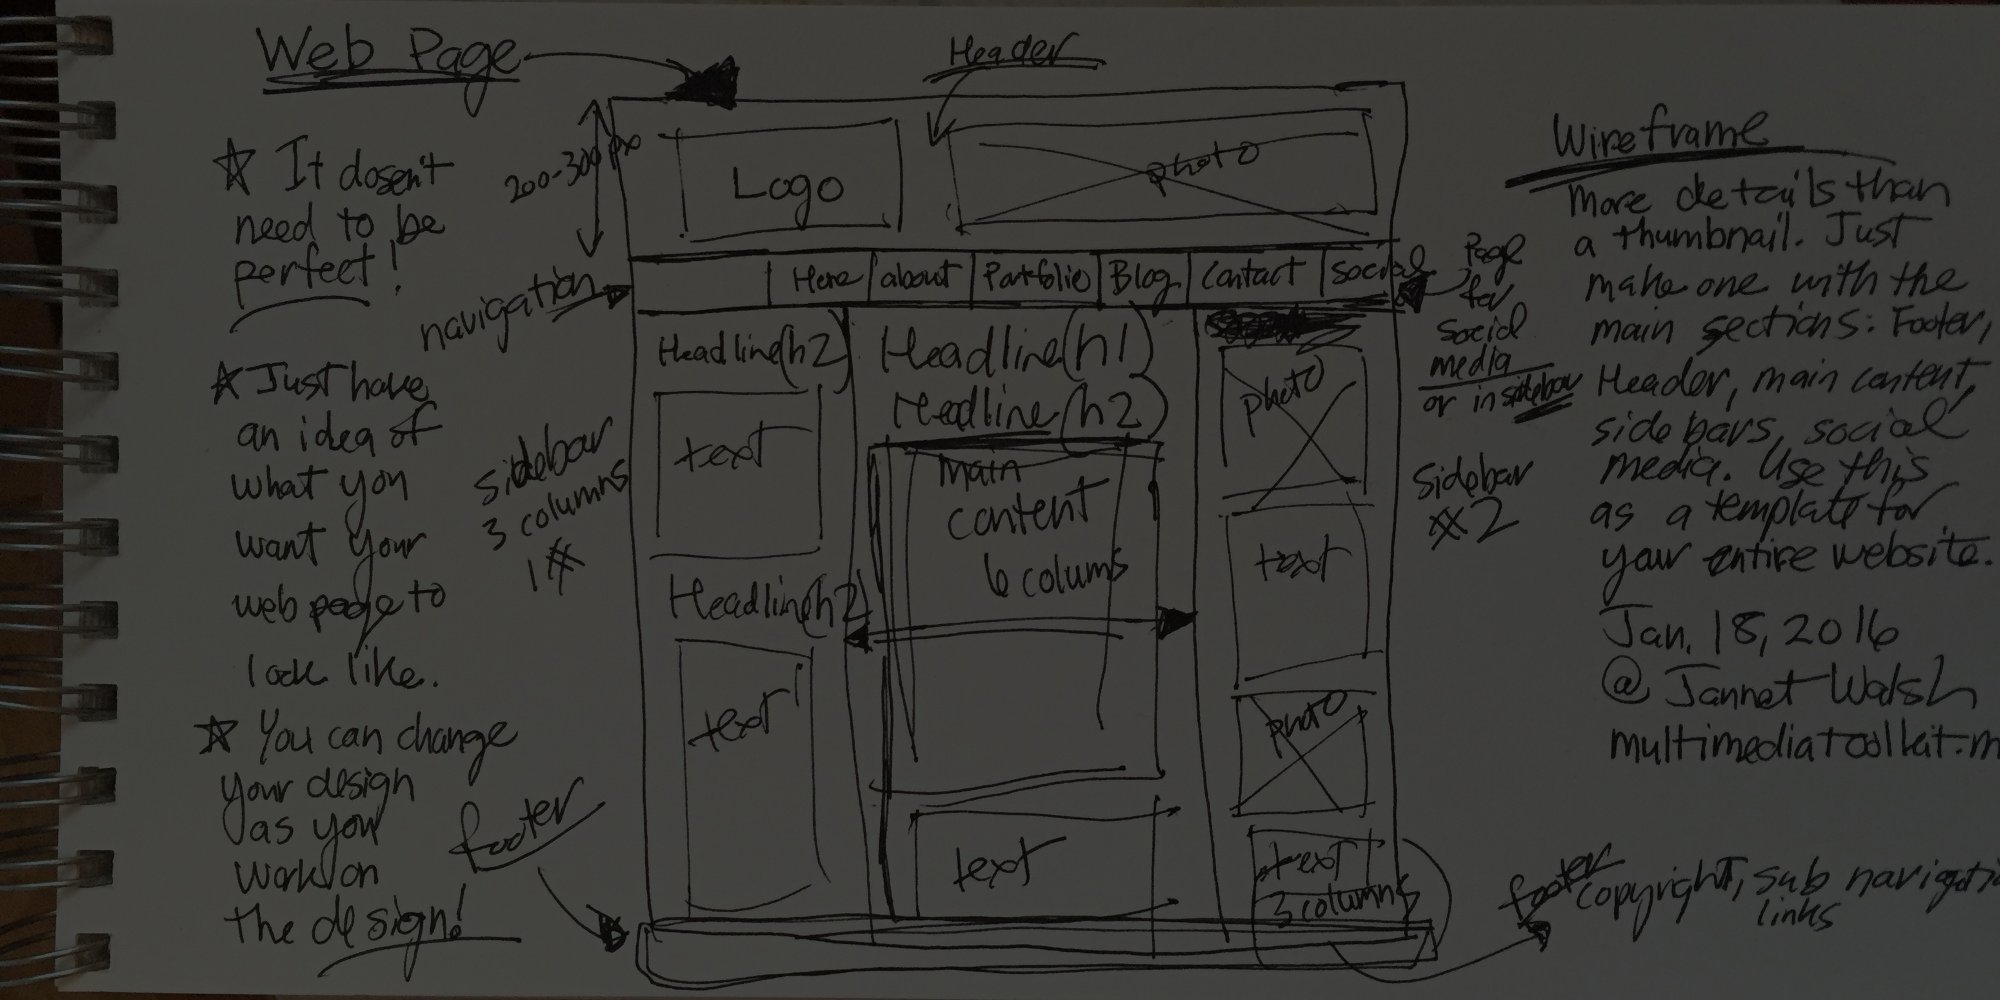 Web Page
☆ It dosen't
need to be
perfect!
☆ Just have
an idea of
what you
want your
web page to
look like.
☆ You can change
your design
as you
work on
the design!
Header
200-300 px
Logo
photo
navigation
Home about Portfolio Blog Contact Social
Page
for
social
media
or in sidebar
sidebar
3 columns
1#
Headline(h2)
text
Headline(h2)
text
Headline(h1)
Headline(h2)
Main
content
6 colums
text
photo
text
photo
text
3 columns
sidebar
#2
footer
footer
copyright, sub navigati
links
Wireframe
more details than
a thumbnail. Just
make one with the
main sections: Footer,
Header, main content,
sidebars, social
media. Use this
as a template for
your entire website.
Jan. 18, 2016
@ Jannet Walsh
multimediatoolkit.m